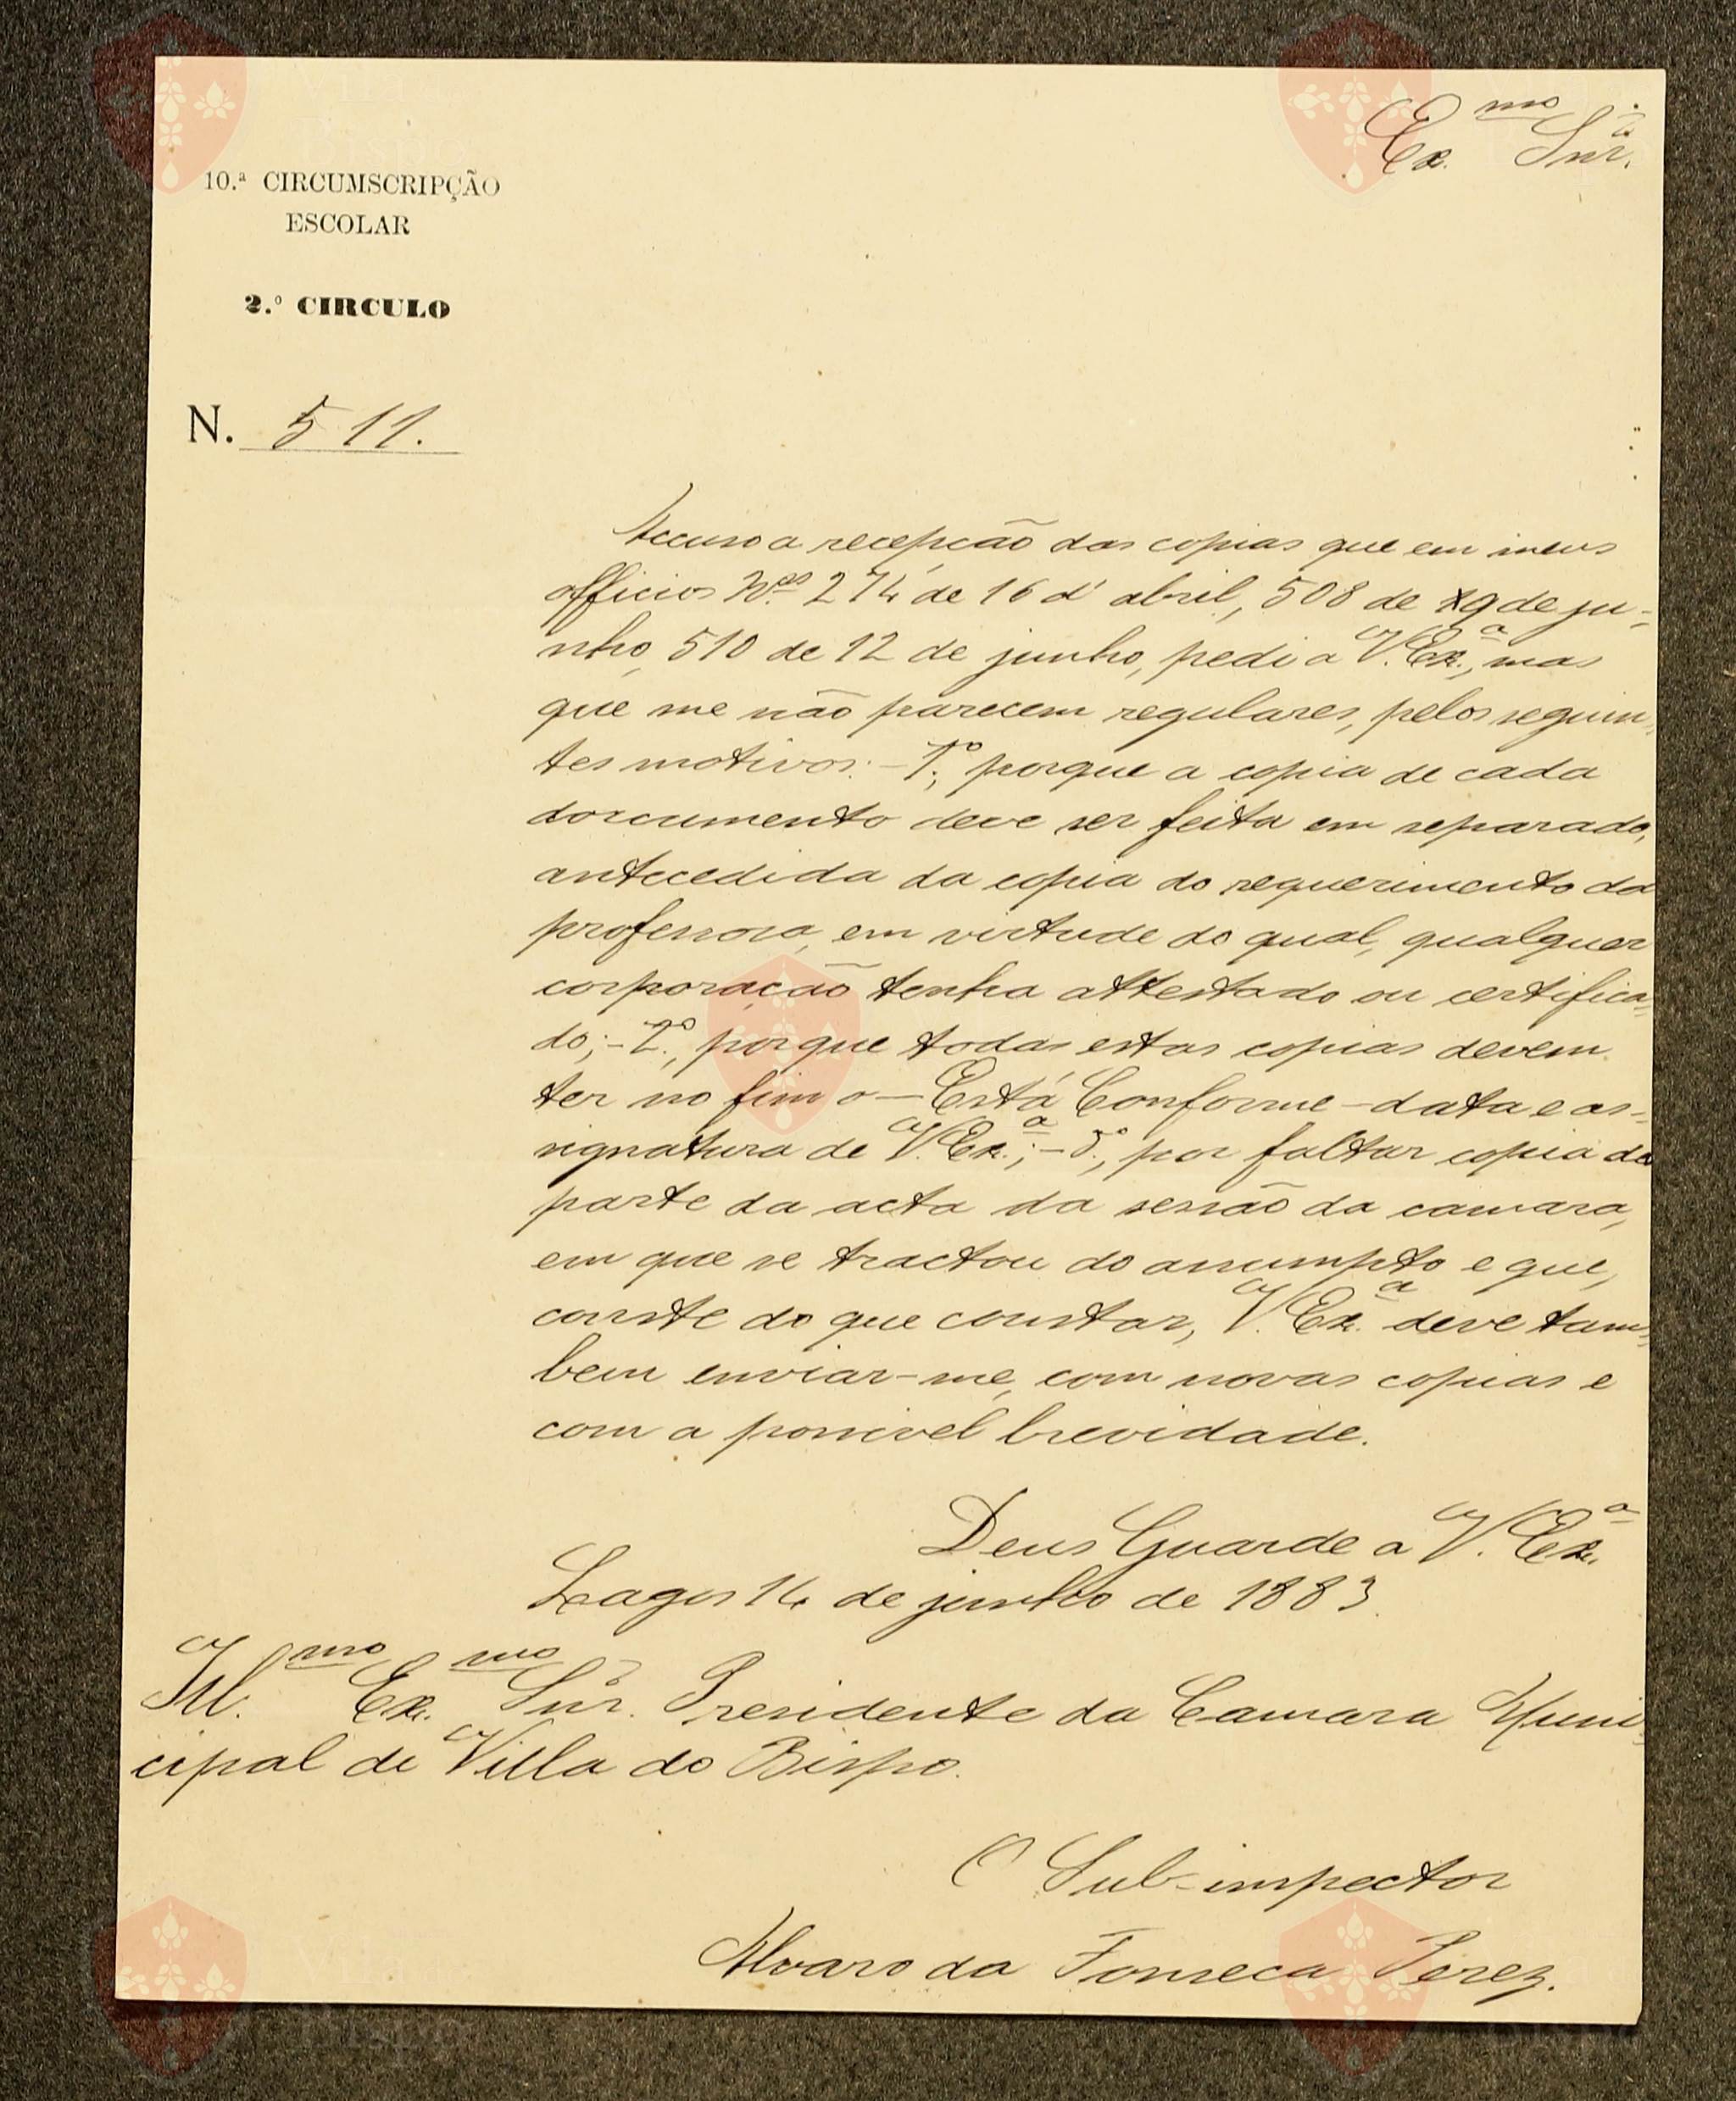 Ex.mo Snr.
10.ª CIRCUMSCRIPÇÃO
ESCOLAR
2.º CIRCULO
N. 511.
Accuso a recepção das copias que em meus
officios N.os 274 de 16 d'abril, 508 de 9 de ju-
nho, 510 de 12 de junho, pedi a V. Ex.ª, mas
que me não parecem regulares, pelos seguin-
tes motivos: - 1.º, porque a copia de cada
documento deve ser feita em separado,
antecedida da copia do requerimento da
professora, em virtude do qual, qualquer
corporação tenha attestado ou certifica-
do; - 2.º, porque todas estas copias devem
ter no fim o — Está Conforme — data e as-
signatura de V. Ex.ª; - 3.º, por faltar copia da
parte da acta da sessão da camara,
em que se tractou do assumpto e que,
conste do que constar, V. Ex.ª deve tam-
bem enviar-me, com novas copias e
com a possivel brevidade.
Deus Guarde a V. Ex.ª
Lagos 14 de junho de 1883.
Ill.mo Ex.mo Snr. Presidente da Camara Muni-
cipal de Villa do Bispo.
O Sub-inspector
Alvaro da Fonseca Perez.
Vila
Bispo